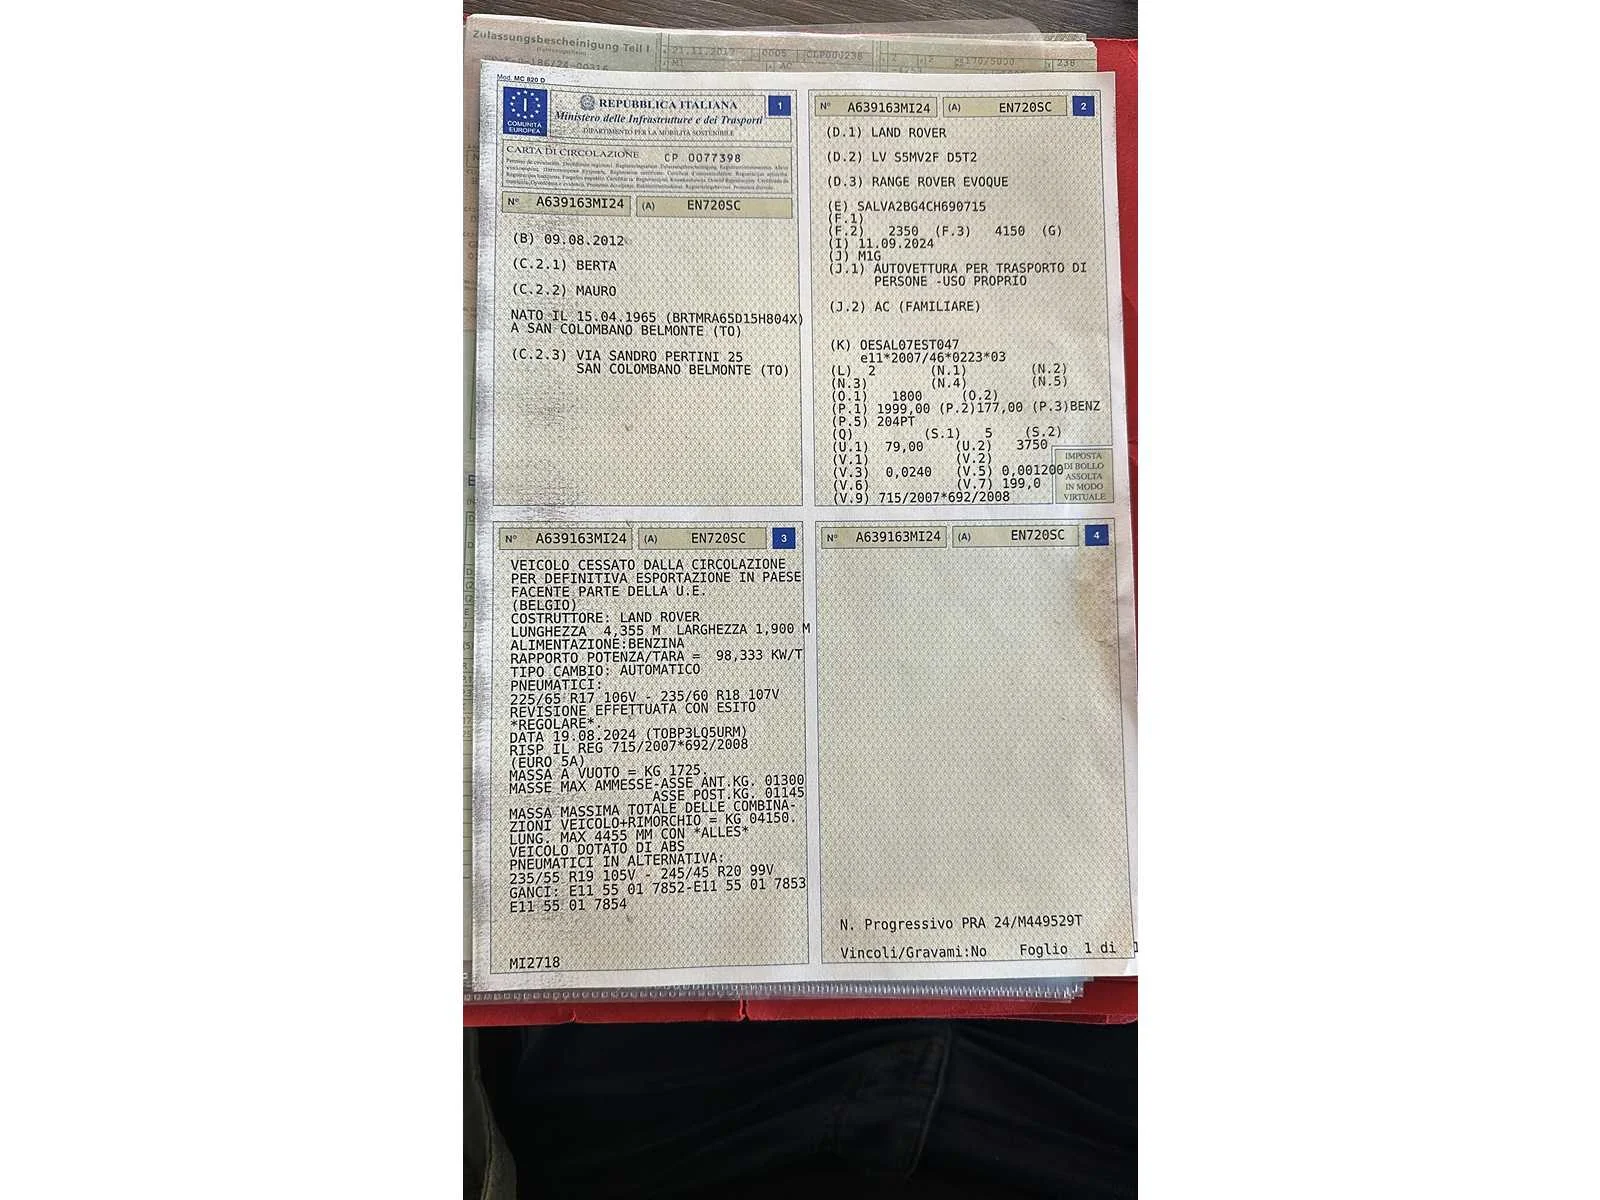 Zulassungsbescheinigung Teil I
21.11.2017
0005
M1
AC
238
Mod. MC 820 D
I
COMUNITÀ
EUROPEA
REPUBBLICA ITALIANA
Ministero delle Infrastrutture e dei Trasporti
DIPARTIMENTO PER LA MOBILITÀ SOSTENIBILE
1
CARTA DI CIRCOLAZIONE CP 0077398
N° A639163MI24 (A) EN720SC
(B) 09.08.2012
(C.2.1) BERTA
(C.2.2) MAURO
NATO IL 15.04.1965 (BRTMRA65D15H804X)
A SAN COLOMBANO BELMONTE (TO)
(C.2.3) VIA SANDRO PERTINI 25
SAN COLOMBANO BELMONTE (TO)
N° A639163MI24 (A) EN720SC 2
(D.1) LAND ROVER
(D.2) LV S5MV2F D5T2
(D.3) RANGE ROVER EVOQUE
(E) SALVA2BG4CH690715
(F.1)
(F.2) 2350 (F.3) 4150 (G)
(I) 11.09.2024
(J) M1G
(J.1) AUTOVETTURA PER TRASPORTO DI
PERSONE -USO PROPRIO
(J.2) AC (FAMILIARE)
(K) OESAL07EST047
e11*2007/46*0223*03
(L) 2 (N.1) (N.2)
(N.3) (N.4) (N.5)
(O.1) 1800 (O.2)
(P.1) 1999,00 (P.2)177,00 (P.3)BENZ
(P.5) 204PT
(Q) (S.1) 5 (S.2)
(U.1) 79,00 (U.2) 3750
(V.1) (V.2)
(V.3) 0,0240 (V.5) 0,001200
(V.6) (V.7) 199,0
(V.9) 715/2007*692/2008
IMPOSTA
DI BOLLO
ASSOLTA
IN MODO
VIRTUALE
N° A639163MI24 (A) EN720SC 3
VEICOLO CESSATO DALLA CIRCOLAZIONE
PER DEFINITIVA ESPORTAZIONE IN PAESE
FACENTE PARTE DELLA U.E.
(BELGIO)
COSTRUTTORE: LAND ROVER
LUNGHEZZA 4,355 M LARGHEZZA 1,900 M
ALIMENTAZIONE:BENZINA
RAPPORTO POTENZA/TARA = 98,333 KW/T
TIPO CAMBIO: AUTOMATICO
PNEUMATICI:
225/65 R17 106V - 235/60 R18 107V
REVISIONE EFFETTUATA CON ESITO
*REGOLARE*.
DATA 19.08.2024 (TOBP3LQ5URM)
RISP IL REG 715/2007*692/2008
(EURO 5A)
MASSA A VUOTO = KG 1725.
MASSE MAX AMMESSE-ASSE ANT.KG. 01300
ASSE POST.KG. 01145
MASSA MASSIMA TOTALE DELLE COMBINA-
ZIONI VEICOLO+RIMORCHIO = KG 04150.
LUNG. MAX 4455 MM CON *ALLES*
VEICOLO DOTATO DI ABS
PNEUMATICI IN ALTERNATIVA:
235/55 R19 105V - 245/45 R20 99V
GANCI: E11 55 01 7852-E11 55 01 7853
E11 55 01 7854
MI2718
N° A639163MI24 (A) EN720SC 4
N. Progressivo PRA 24/M449529T
Vincoli/Gravami:No Foglio 1 di 1